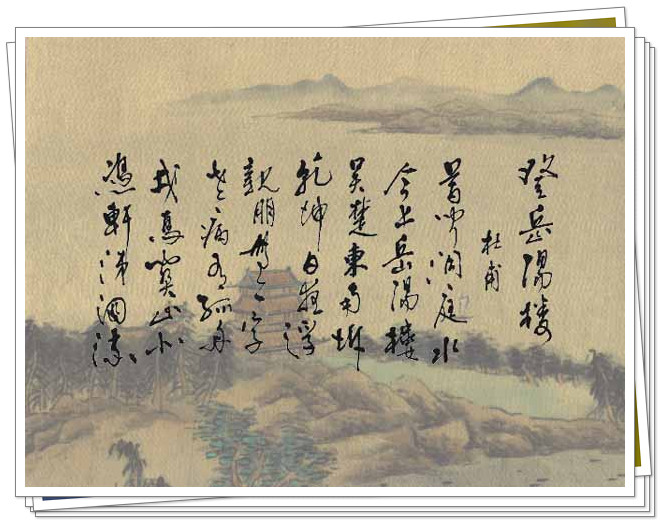 登岳陽楼
杜甫
昔聞洞庭水
今上岳陽樓
吴楚東南坼
乾坤日夜浮
親朋無一字
老病有孤舟
戎馬關山北
憑軒涕泗流